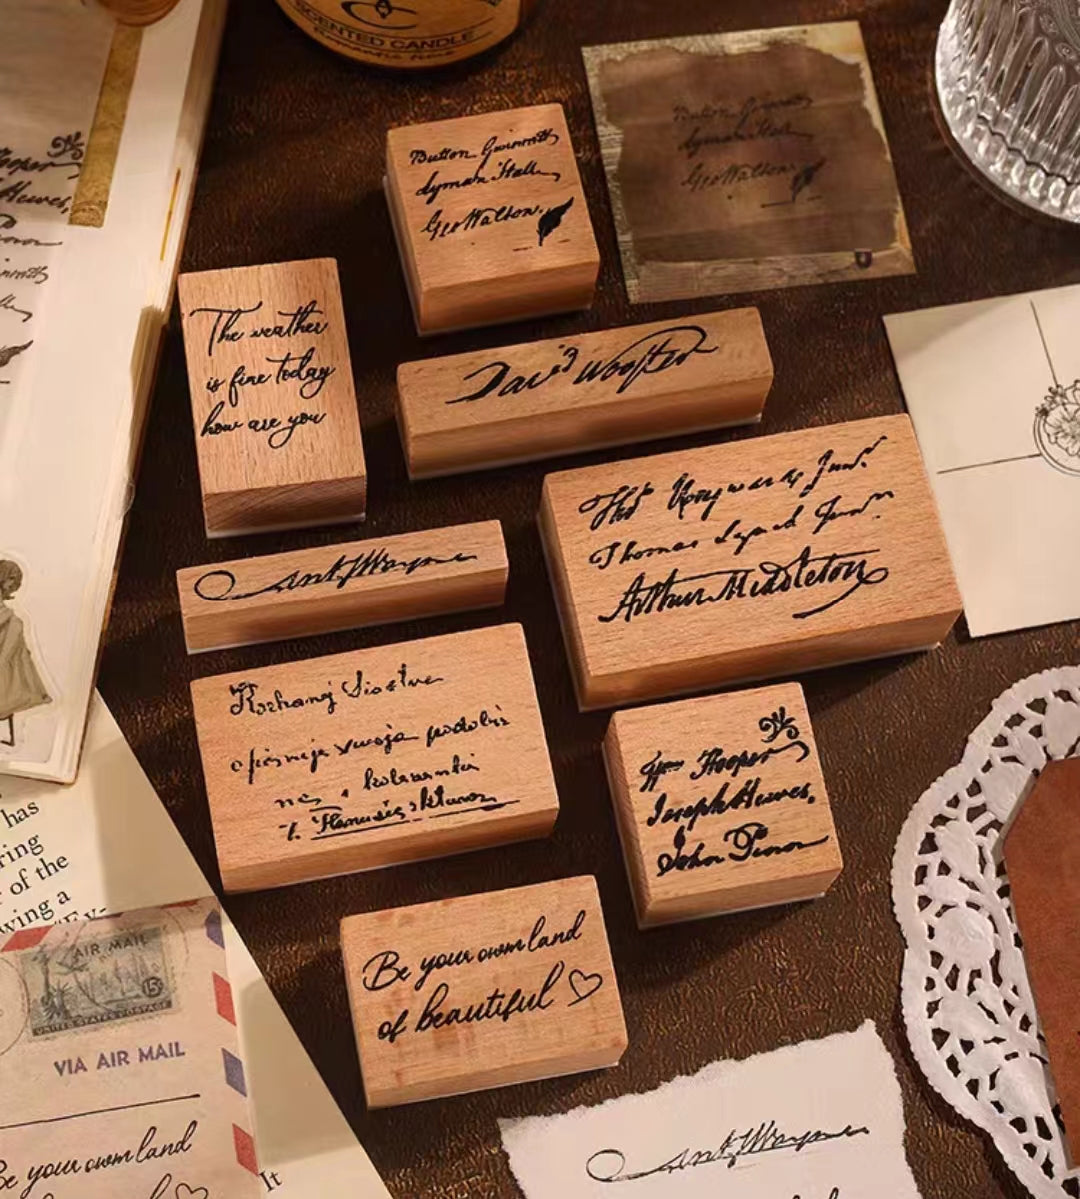 SCENTED CANDLE
Button Gwinnett
Lyman Hall
Geo Walton.
Button Gwinnett
Lyman Hall
Geo Walton.
The weather
is fine today
how are you
David Wooster
Ant Wayne
Thos Heyward Junr.
Thomas Lynch Junr.
Arthur Middleton
Kochanej Siostze
Wm Hooper
Joseph Hewes,
John Penn
Hooper
Hewes,
Be your own land
of beautiful
has
ring
of the
wing a
"Ex-
AIR MAIL
15c
UNITED STATES POSTAGE
VIA AIR MAIL
Be your own land
It
Ant Wayne